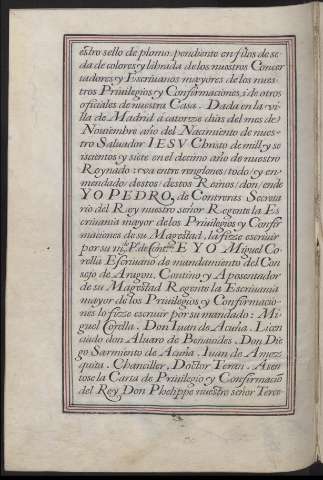 estro sello de plomo pendiente en filos de se
da de colores y librada de los nuestros Concer
tadores y Escriuanos mayores de los nues
tros Priuilegios y Confirmaciones, i de otros
oficiales de nuestra Casa. Dada en la vi
lla de Madrid á catorze dias del mes de
Nouiembre año del Nacimiento de nues
tro Saluador IESV Christo de mill y se
iscientos y siete en el deçimo año de nuestro
Reynado va entre renglones / todo / y en
mendado / destos / destos Reinos / don / ende
YO PEDRO de Contreras Secreta
rio del Rey nuestro señor Regente la Es
criuania mayor de los Priuilegios y Confir
maciones de su Magestad, la fize escriuir
por su m.do P.o de Cont.as E YO Miguel Co
rella Escriuano de mandamiento del Con
sejo de Aragon, Contino y Aposentador
de su Magestad Regente la Escriuania
mayor de los Priuilegios y Confirmacio
nes lo fize escriuir por su mandado: Mi
guel Corella. Don Iuan de Acuña. Licen
ciado don Aluaro de Benauides. Don Die
go Sarmiento de Acuña. Iuan de Amez
quita. Chanciller, Doctor Teran. Asen
tose la Carta de Priuilegio y Confirmació
del Rey Don Phelippe nuestro señor Terce